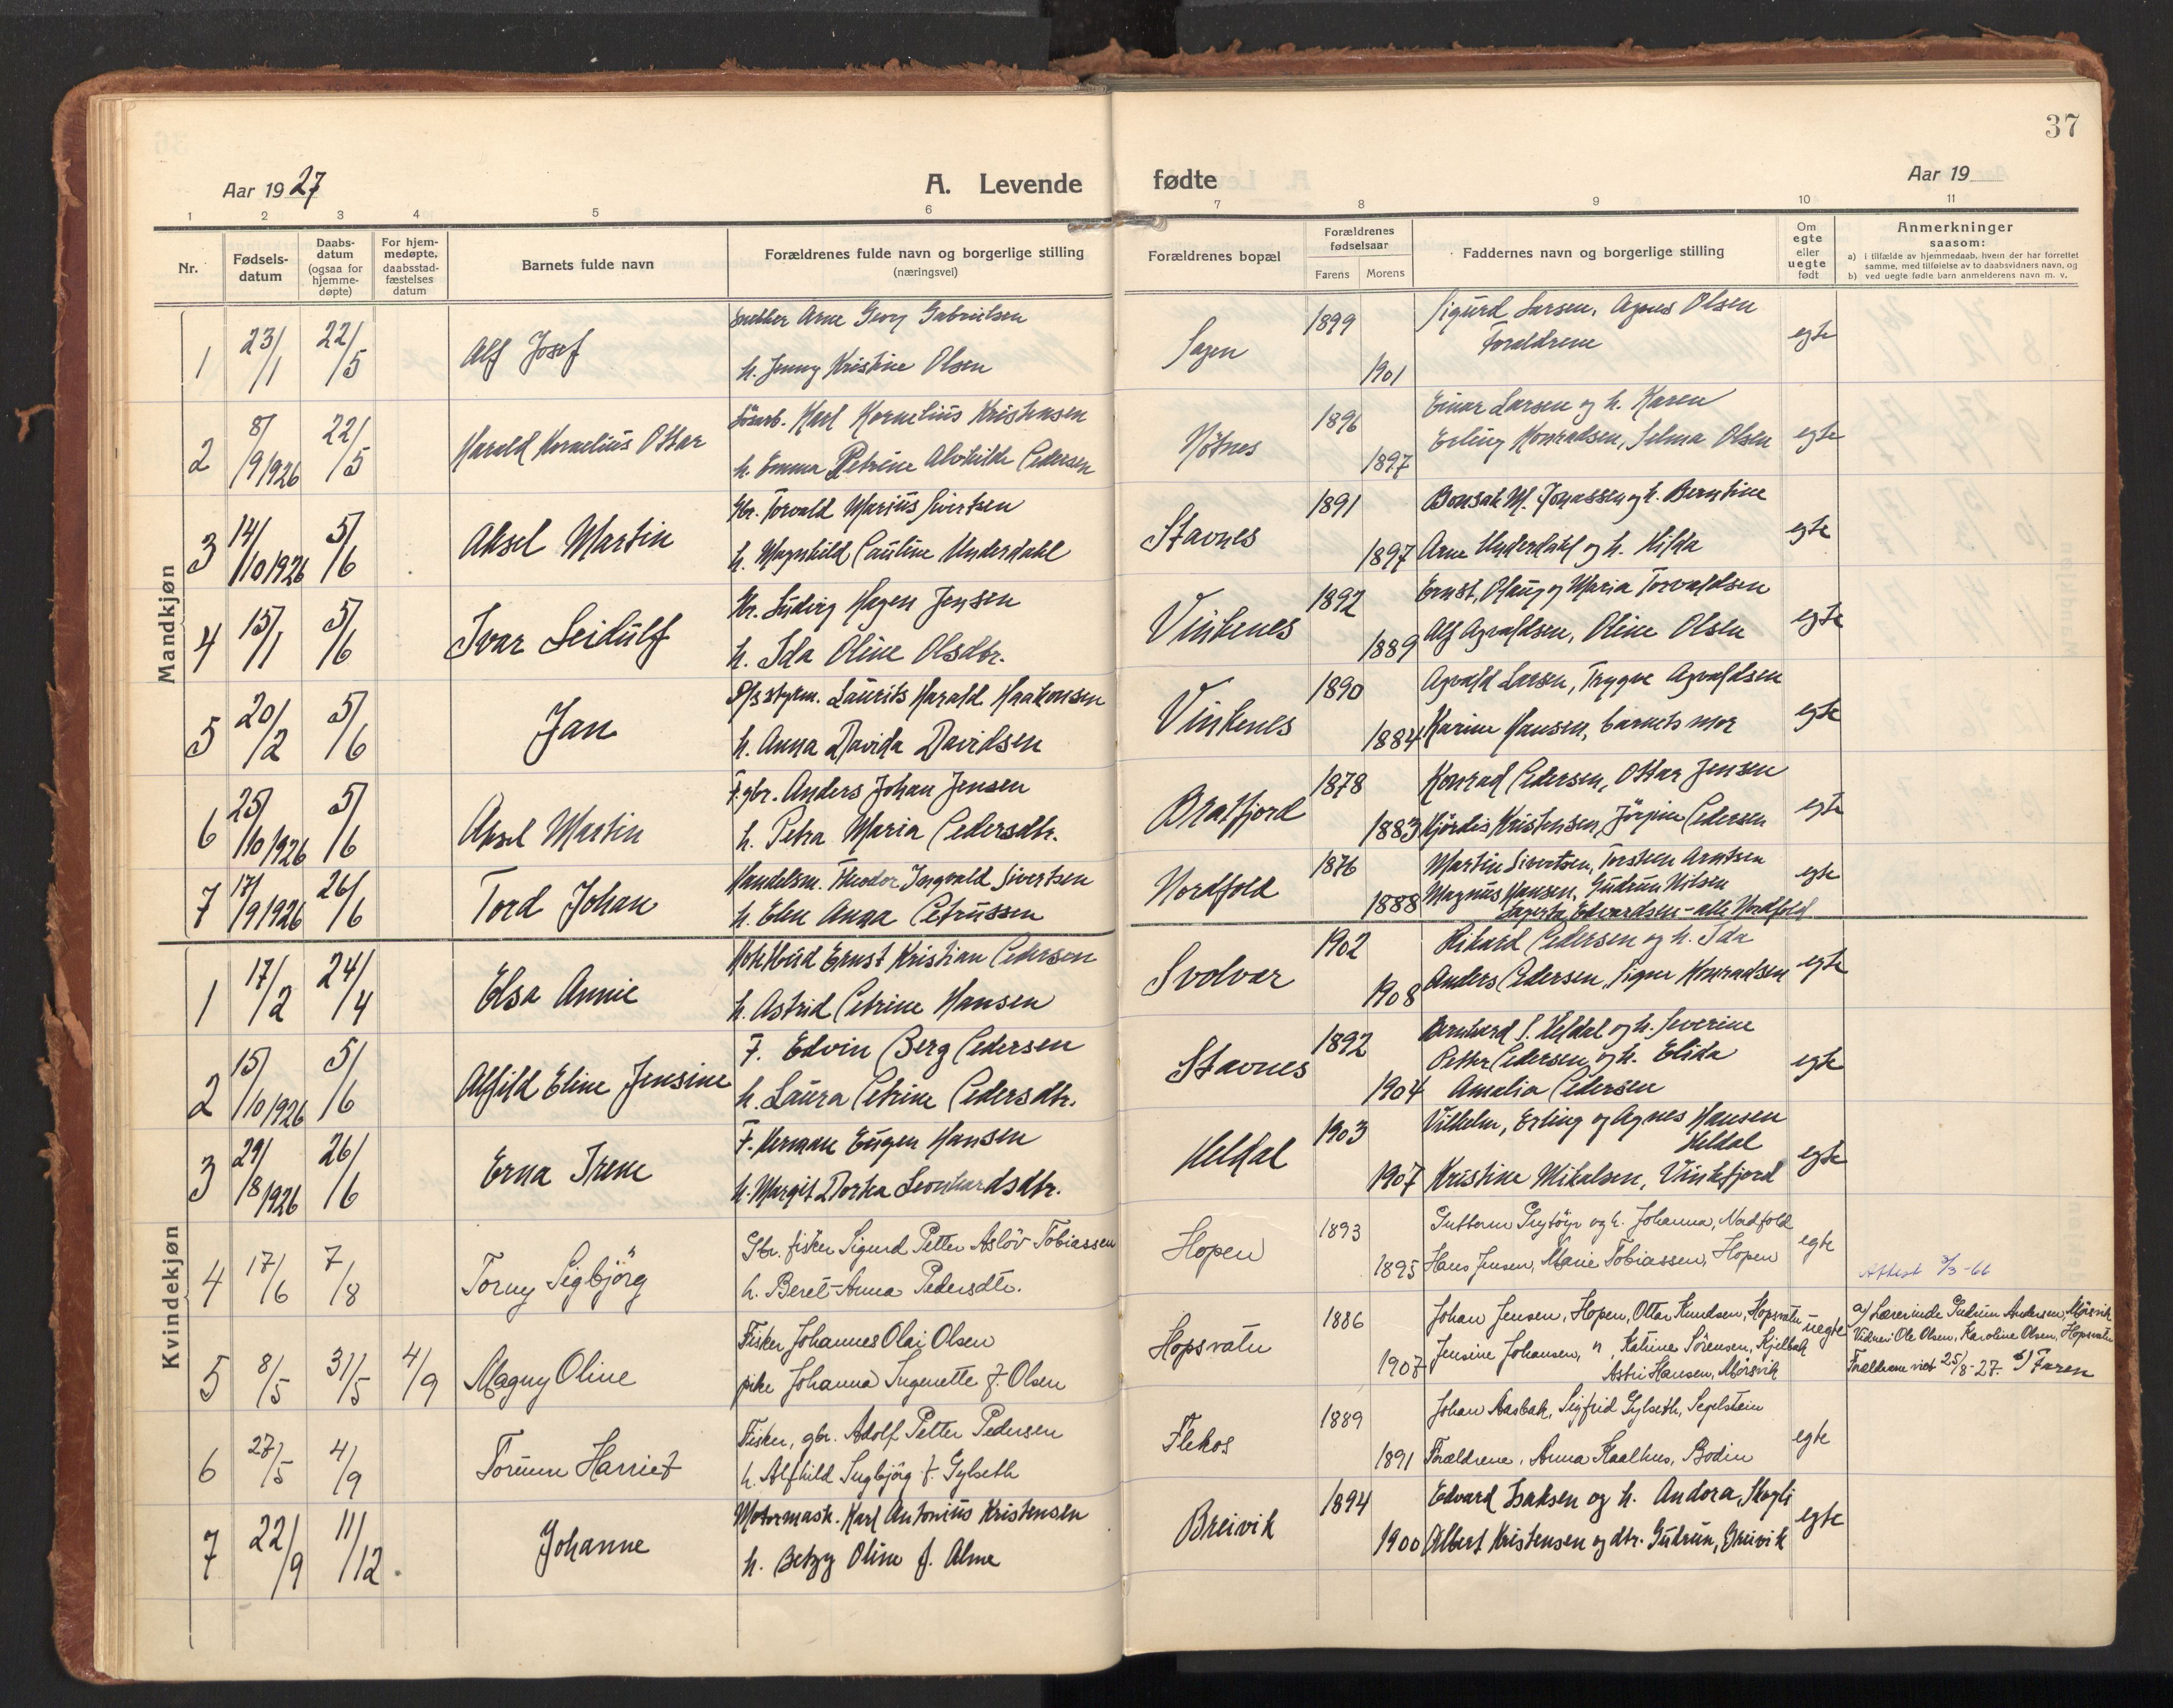 37
Aar 1927
A. Levende fødte
Aar 19
1 2 3 4 5 6 7 8 9 10 11
Nr.
Fødsels-
datum
Daabs-
datum
(ogsaa for
hjemme-
døpte)
For hjem-
medøpte,
daabsstad-
fæstelses
datum
Barnets fulde navn
Forældrenes fulde navn og borgerlige stilling
(næringsvei)
Forældrenes bopæl
Forældrenes
fødselsaar
Farens Morens
Faddernes navn og borgerlige stilling
Om
egte
eller
uegte
født
Anmerkninger
saasom:
a) i tilfælde av hjemmedaab, hvem der har forrettet
samme, med tilføielse av to daabsvidners navn, og
b) ved uegte fødte barn anmelderens navn m. v.
Mandkjøn
Arne Georg Gabrielsen 1899 Sigurd Larsen, Agnes Olsen
1 23/1 22/5 Alf Josef Sagen Forældrene egte
h. Jenny Kristine Olsen 1901
Karl Kornelius Kristensen 1896 Einar Larsen og h. Karen
2 8/9 1926 22/5 Harald Kornelius Ottar Nötnes egte
h. Emma Petrine Alvhilde Pedersen 1897 Erling Konradsen, Selma Olsen
Gbr. Torvald Marius Sivertsen 1891 Bonsak M. Jonassen og h. Berntine
3 14/10 1926 5/6 Aksel Martin Stavnes egte
h. Magnhild Pauline Underdahl 1897 Arne Underdahl og h. Hilda
Gbr. Ludvig Hagen Jensen 1892 Ernst, Olaug og Maria Torvaldsen
4 15/1 5/6 Ivar Leidulf Vinkenes egte
h. Ida Oline Olsdtr. 1889 Alf Agvaldsen, Oline Olsen
D/s styrm. Laurits Harald Haakonsen 1890 Agvald Larsen, Trygve Agvaldsen
5 20/2 5/6 Jan Vinkenes egte
h. Anna Davida Davidsen 1884 Karine Hansen, barnets mor
F. gbr. Anders Johan Jensen 1878 Konrad Pedersen, Ottar Jensen
6 25/10 1926 5/6 Aksel Martin Bratfjord egte
h. Petra Maria Pedersdtr. 1883 Hjördis Kristensen, Jörgine Pedersen
Handelsm. Theodor Ingvald Sivertsen 1876 Martin Sivertsen, Torstein Arntsen
7 17/9 1926 26/6 Tord Johan Nordfold Magnus Hansen, Gudrun Nilsen egte
h. Elen Anna Petrussen 1888 Lagerta Edvardsen - alle Nordfold
Kvindekjøn
Ernst Kristian Pedersen 1902 Rikard Pedersen og h. Ida
1 17/2 24/4 Elsa Annie Svolvær egte
h. Astrid Petrine Hansen 1908 Anders Pedersen, Signe Konradsen
F. Edvin Berg Pedersen 1892 Bernhard S. Heldal og h. Severine
2 15/10 1926 5/6 Alfild Eline Jensine Stavnes Petter Pedersen og h. Elida egte
h. Laura Petrine Pedersdtr. 1904 Amalia Pedersen
F. Herman Eugen Hansen 1903 Vilhelm, Erling og Agnes Hansen
3 29/8 1926 26/6 Erna Irene Heldal Heldal egte
h. Margit Dortea Leonhardsdtr. 1907 Kristine Mikalsen, Vinkfjord
Gbr. fisker Sigurd Petter Aslöv Tobiassen 1893 Guttorm Grytöyr og h. Johanna, Nordfold
4 17/6 7/8 Torny Sigbjörg Hopen egte
h. Beret-Anna Pedersdtr. 1895 Hans Jensen, Marie Tobiassen, Hopen Attest 3/3-66
Fisker Johannes Olai Olsen 1886 Johan Jensen, Hopen, Ottar Knudsen, Hopsvatn uegte a) Lærerinde Gudrun Andersen, Mörsvik
5 8/5 31/5 4/9 Magny Oline Hopsvatn Vidner: Ole Olsen, Karoline Olsen, Hopsvatn
pike Johanna Ingenette f. Olsen 1907 Jensine Johansen, " Katrine Sörensen, Kjelbak Forældrene viet 25/8-27. b) Faren
Astri Hansen, Mörsvik
Fisker, gbr. Adolf Petter Pedersen 1889 Johan Aasbak, Sigfrid Gylseth, Segelstein
6 27/5 4/9 Torunn Harriet Flekos egte
h. Alfhild Ingbjörg f. Gylseth 1891 Forældrene, Anna Kaalhus, Bodin
Motormask. Karl Antonius Kristensen 1894 Edvard Isaksen og h. Andora, Skogli
7 22/9 11/12 Johanne Breivik egte
h. Betzy Oline f. Alme 1900 Albert Kristensen og dtr. Gudrun, Breivik